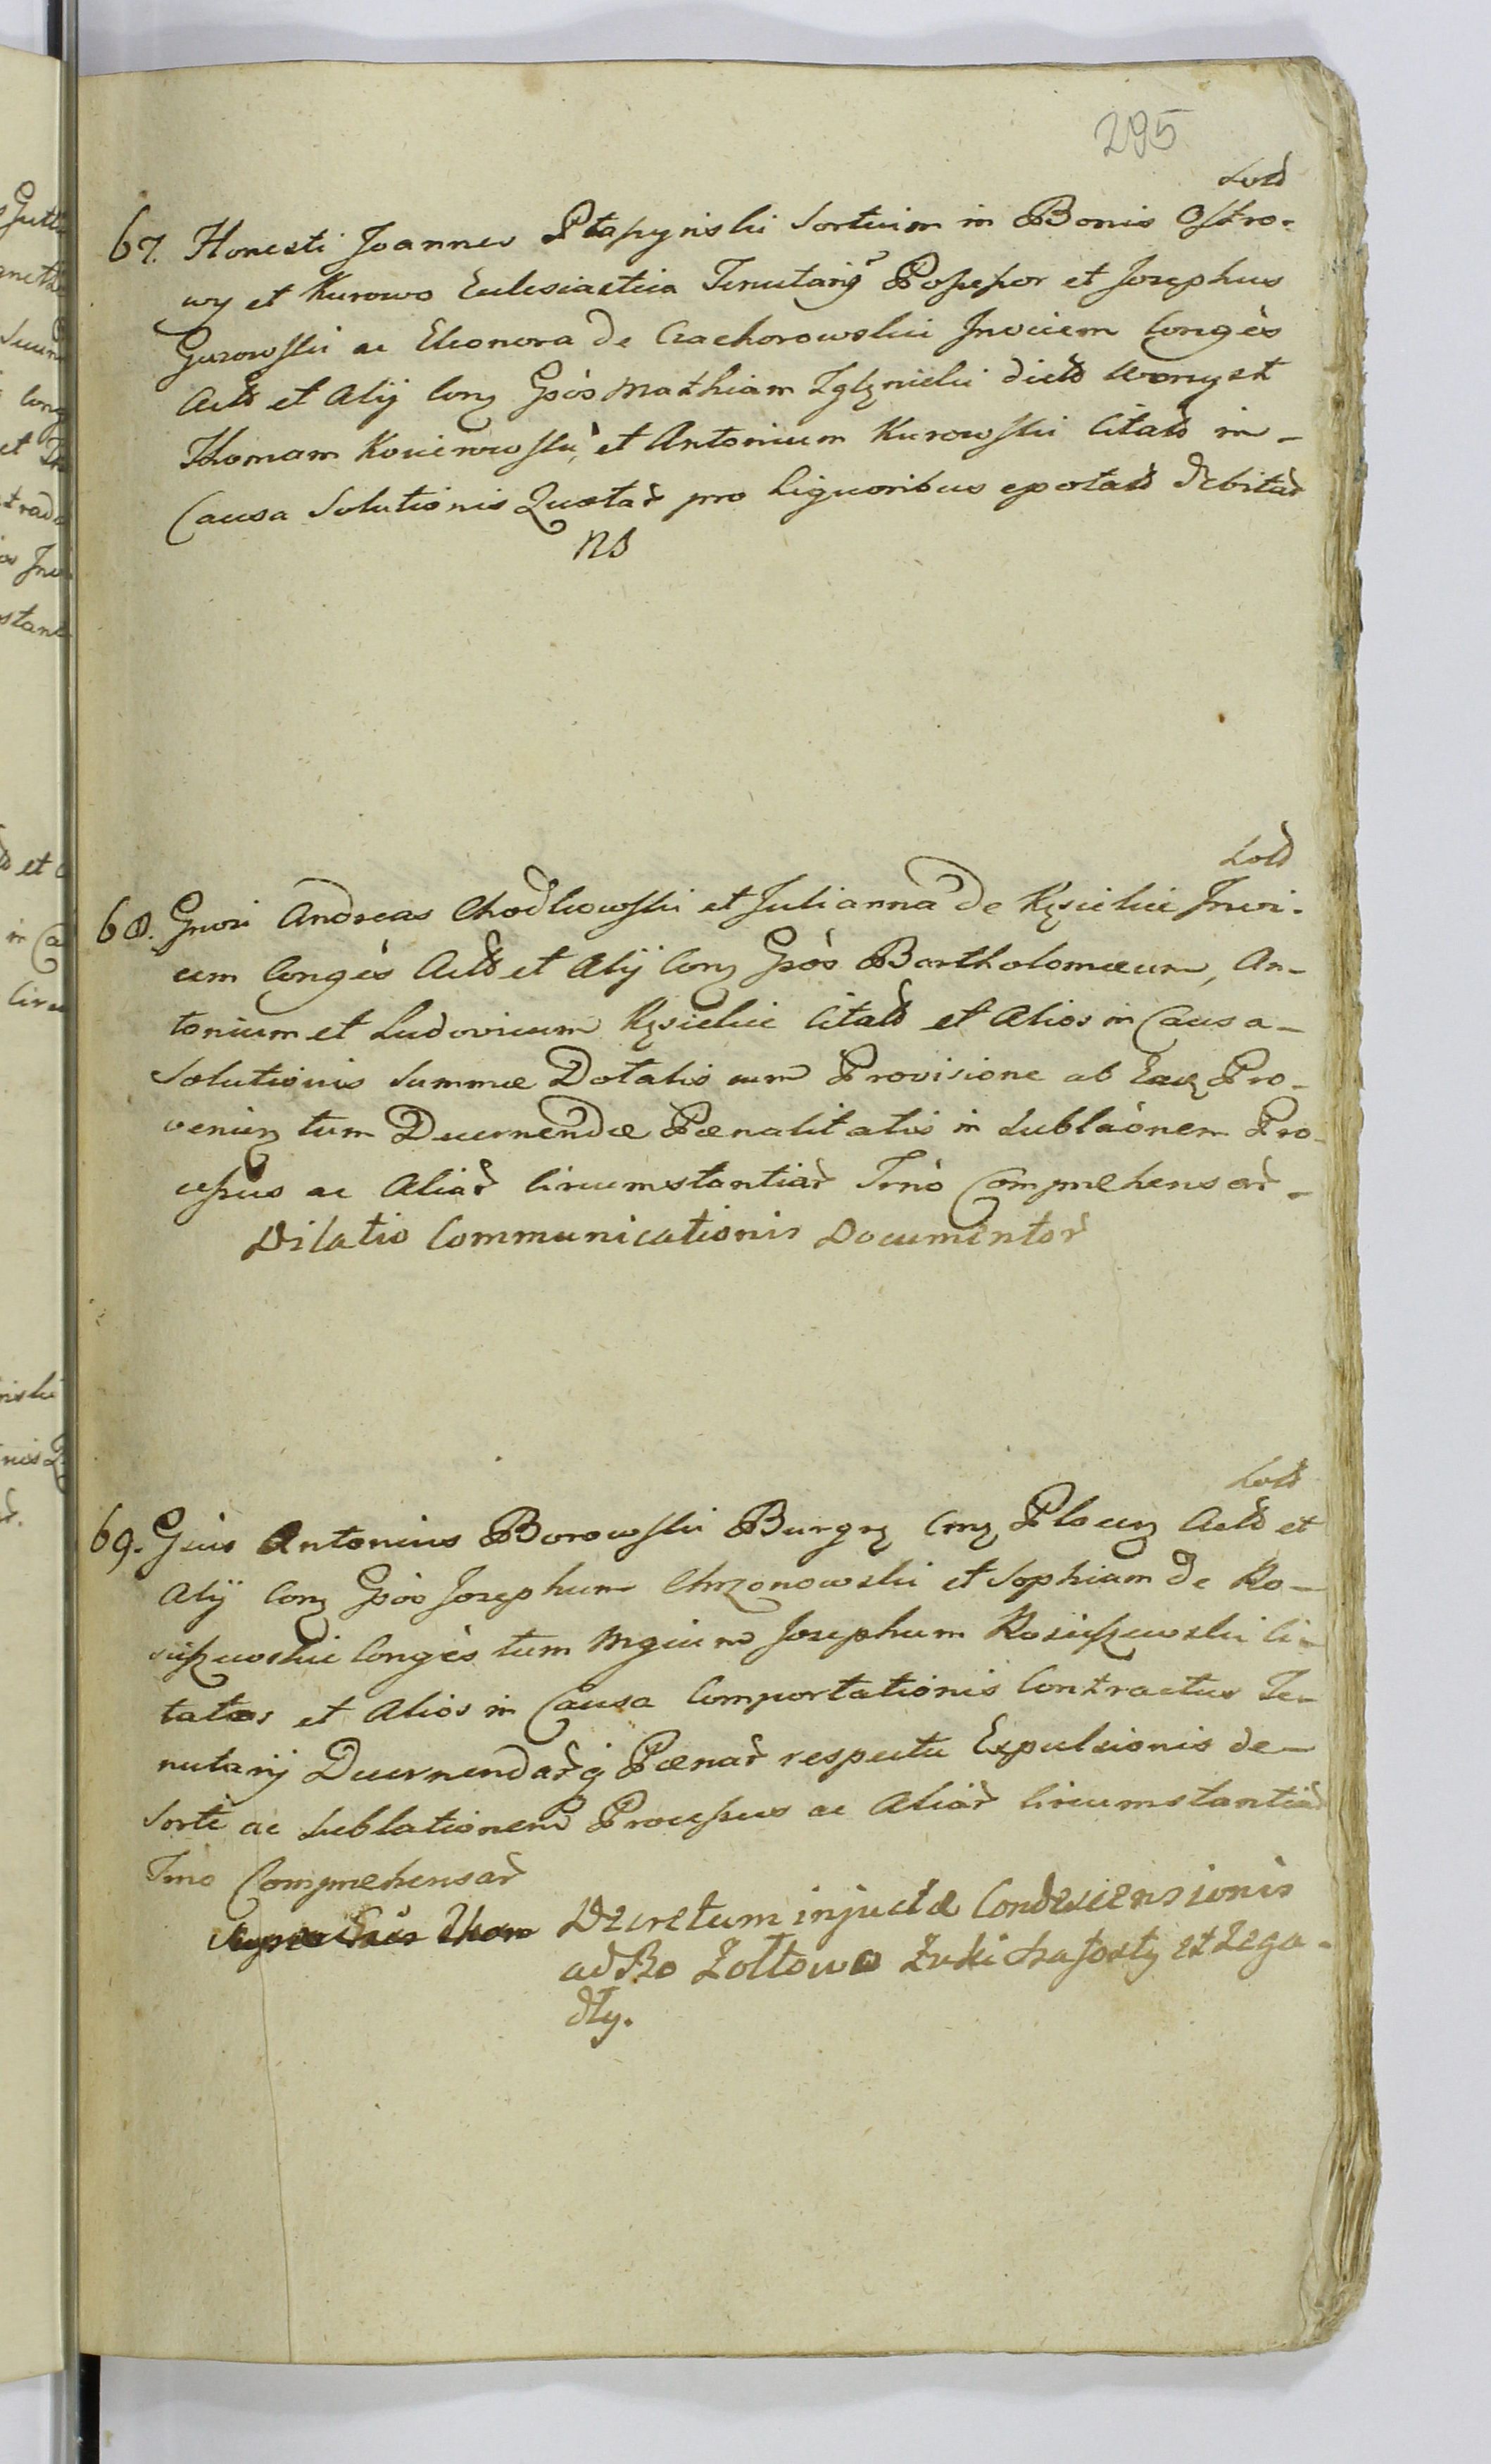 295
67. Honesti Joannes Ptapynski Sortium in Bonis Ostro-
wy et Kurowo Ecclesiastica Tenutariq Possessor et Josephus
Gurowski ac Eleonora de Czachorowskie Invicem Congès
Actò et Alij Conz Gsòs Mathiam Iglznicki dictò Wonyst
Thomam Kosierowski, et Antonium Kurowski Citatò in-
Causa Solutionis Quotar pro Liquoribus epotatò Debitar
NS
68. Gnrsi Andreas Chodkowski et Julianna de Kęsickie Invi-
cem Congès Actò et Alij Conz Gsòs Bartholomæum, An-
tonium et Ludovicum Kęsickie Citatò et Alios in Causa-
Solutionis Summæ Dotalis cum Provisione ab Eaq Pro-
venienz tum Decernendæ Pænalitatis in Sublaònem Pro-
cessus ac Aliar Circumstantiar Trnò Comprehensar.
Dilatio Communicationis Documentor
69. Gsius Antonius Borowski Burgrz Crnz Plocenz Actò et
Alij Conz Gsòs Josephum Chrzonowski et Sophiam de Ro-
ściszewskie Congès tum Mgcum Josephum Rosciszewski Ci-
tatos et Alios in Causa Comportationis Contractus Te-
nutarij Decernendarq Pænar respectu Expulsionis de-
Sorte ac Sublationem Processus ac Aliar Circumstantiar
Trno Comprehensar
Decretum injuctæ Condescensionis
ad Bo Zołtowo Zuki et Zega-
dły.